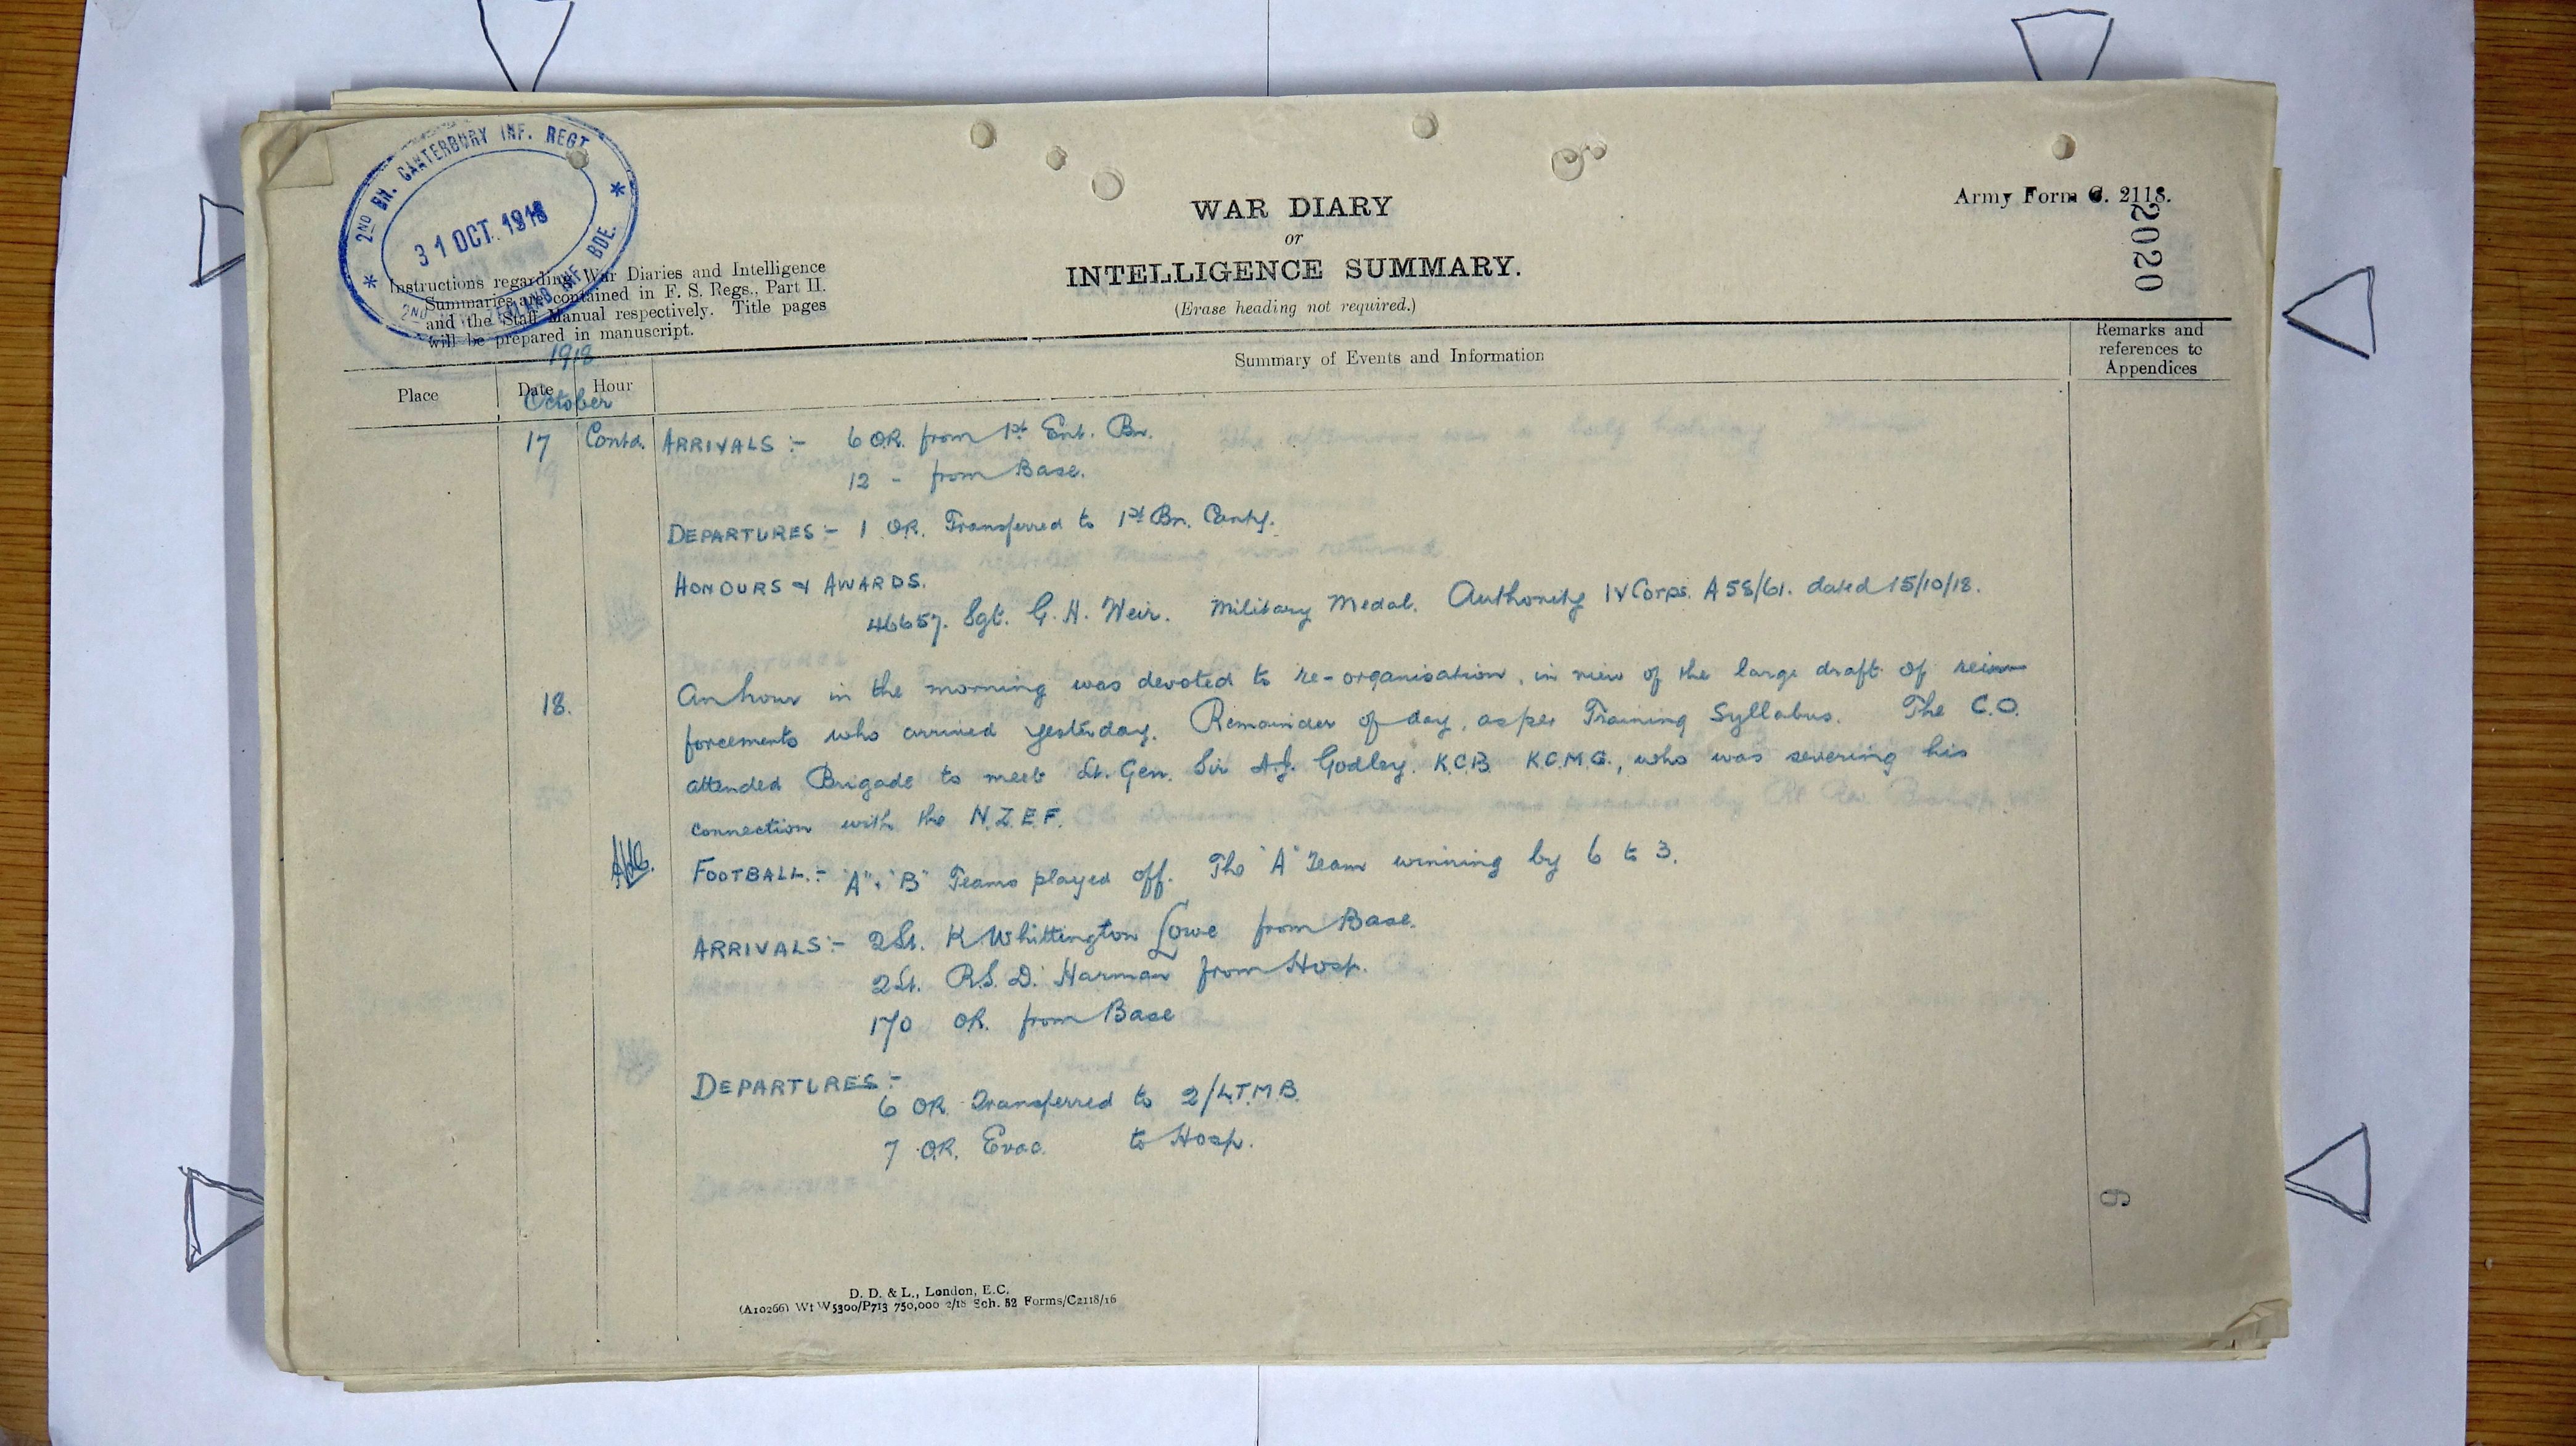 2ND BN. CANTERBURY INF. REGT
31 OCT. 1918
2ND ZEALAND INF BDE.
Instructions regarding War Diaries and Intelligence
Summaries are contained in F. S. Regs., Part II.
and the Staff Manual respectively. Title pages
will be prepared in manuscript.
WAR DIARY
or
INTELLIGENCE SUMMARY.
(Erase heading not required.)
Army Form C. 2118.
2020
1918
Place
Date
Hour
October
Summary of Events and Information
Remarks and
references to
Appendices
17 Contd. ARRIVALS :- 6 OR. from 1st Ent. Bn.
12 - from Base.
DEPARTURES :- 1 OR. Transferred to 1st Bn. Canty.
HONOURS & AWARDS.
46657. Sgt. G. H. Weir. Military Medal. Authority IV Corps. A58/61. dated 15/10/18.
18. An hour in the morning was devoted to re-organisation, in view of the large draft of rein
forcements who arrived yesterday. Remainder of day, as per Training Syllabus. The C.O.
attended Brigade to meet Lt. Gen. Sir A.J. Godley. K.C.B. K.C.M.G., who was severing his
connection with the N.Z.E.F.
FOOTBALL :- "A" & "B" Teams played off. The "A" Team winning by 6 to 3.
ARRIVALS :- 2Lt. K Whittington Lowe from Base.
2Lt. R.S.D. Harman from Hosp.
170 OR. from Base
DEPARTURES :-
6 OR. Transferred to 2/L.T.M.B.
7 OR. Evac. to Hosp.
6
D. D. & L., London, E.C.
(A10266) Wt W5300/P713 750,000 2/18 Sch. 52 Forms/C2118/16